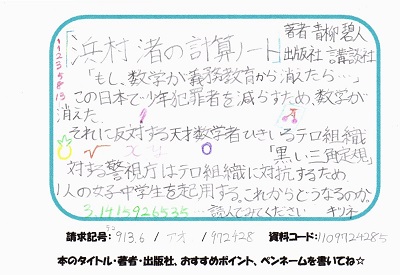 「浜村渚の計算ノート」
著者 青柳碧人
出版社 講談社
1
1
2
3
5
8
13
「もし、数学が義務教育から消えたら…」
この日本で少年犯罪者を減らすため、数学が
消えた。
それに反対する天才数学者ひきいるテロ組織
「黒い三角定規」
対する警視庁はテロ組織に対抗するため
1人の女子中学生を起用する。これからどうなるのか。
3.1415926535……読んでみてください キツネ
請求記号: 913.6 / アオ / 972428 資料コード:1109724285
本のタイトル・著者・出版社、おすすめポイント、ペンネームを書いてね☆